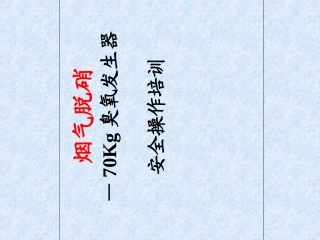 烟气脱硝
— 70Kg 臭氧发生器
安全操作培训